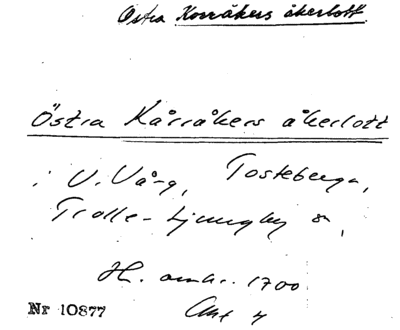 Östra Korråkers åkerlott
Östra Kårråkers åkerlott
i V. Vång, Tosteberga,
Trolle-Ljungby sn,
H. omkr. 1700
Nr 10877 Akt 4